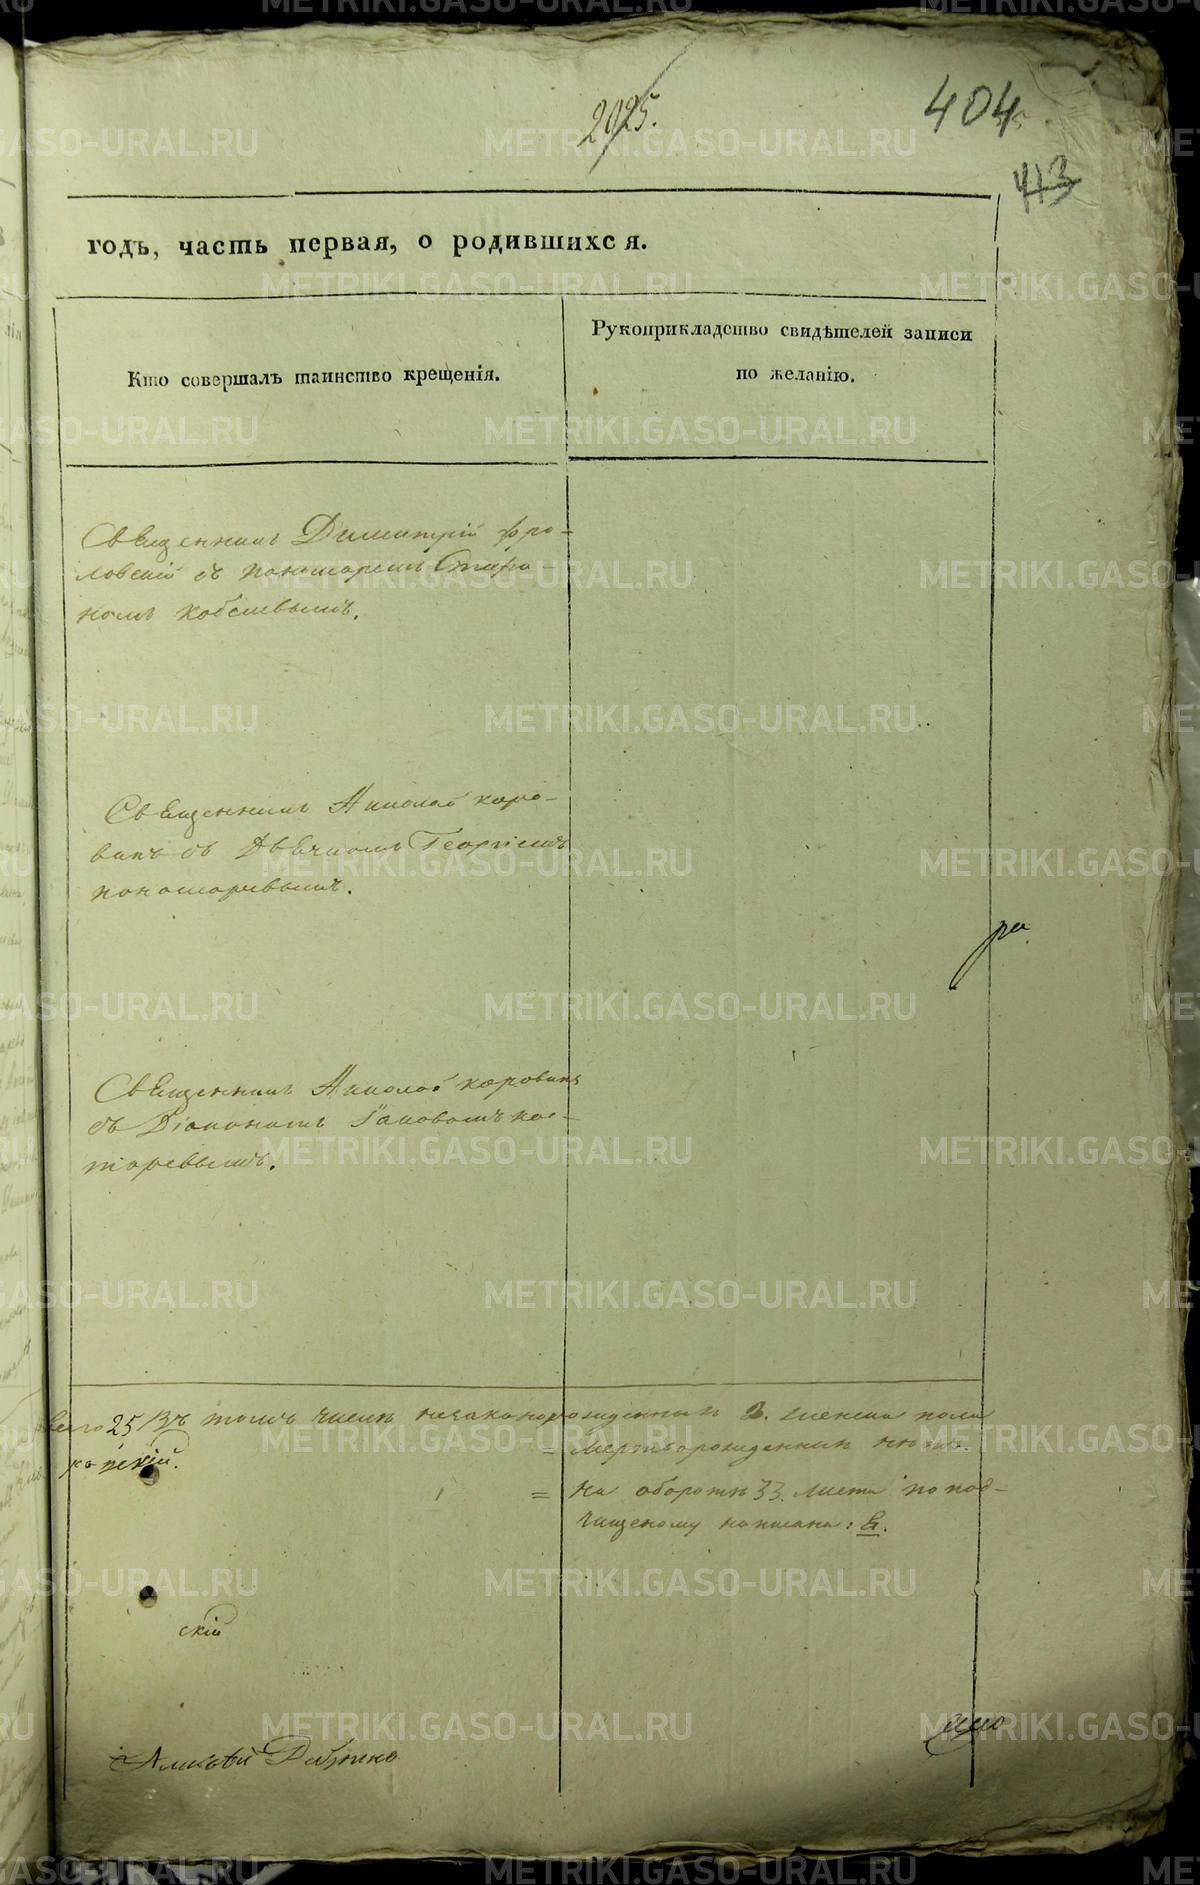 2025.
404
413
годъ, часть первая, о родившихся.
Кто совершалъ таинство крещенія.
Рукоприкладство свидѣтелей записи
по желанію.
Священникъ Димитрій Фро-
ловскій съ пономаремъ
Священникъ Николай Коро-
винъ съ Дьячкомъ Георгіемъ
пономаревымъ.
ра
Священникъ Николай Коровинъ
съ Діакономъ Іаковомъ кос-
таревымъ.
всего 25 Въ томъ числѣ незаконорожденныхъ 2. женска пола
= Мертворожденныхъ нѣтъ.
= На оборотѣ 33. листа по под-
чищеному написано:
скій
METRIKI.GASO-URAL.RU